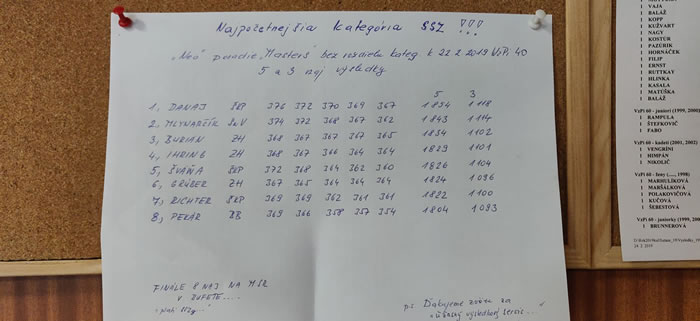 Najpočetnejšia kategória SSZ !!!
„Neo" poradie „Masters" bez rozdielu kateg. k 22.2.2019 VzPi 40
5 a 3 naj výsledky
5 3
1, DANAJ 376 372 370 369 367 1854 1118
2, MLYNARČÍK SNV 374 372 368 367 362 1843 1114
3, BURIAN ZH 368 367 367 367 365 1834 1102
4, IHRING ZH 368 367 366 364 364 1829 1101
5, ŠVAŇA 372 368 364 362 360 1826 1104
6, GRÚBER ZH 367 365 364 364 364 1824 1096
7, RICHTER 369 369 362 361 361 1822 1100
8, PEKÁR BB 369 366 358 357 354 1804 1093
FINÁLE 8 NAJ NA MSR
V BUFETE....
ps Ďakujeme za
výsledkový servis...
VAJA
BALÁŽ
1 KOPP
1 KUŽVART
1 NAGY
1 KOSTÚR
1 PAZÚRIK
1 HORNÁČEK
1 FILIP
1 ERNST
1 RUTTKAY
1 HLINKA
1 KASALA
1 MATUŠKA
1 BALÁŽ
VzPi 60 - juniori (1999, 200
1 RAMPULA
1 ŠTEFKOVIČ
1 FABO
VzPi 60 - kadeti (2001, 2002)
1 VENGRÍNI
1 HIMPÁN
1 NIKOLIČ
VzPi 60 - ženy (...., 1998)
1 MARHULÍKOVÁ
1 MARŠÁLKOVÁ
1 POLAKOVIČOVÁ
1 KUČOVÁ
1 ŠEBESTOVÁ
VzPi 60 - juniorky (1999, 200
1 BRUNNEROVÁ
24 2 2019